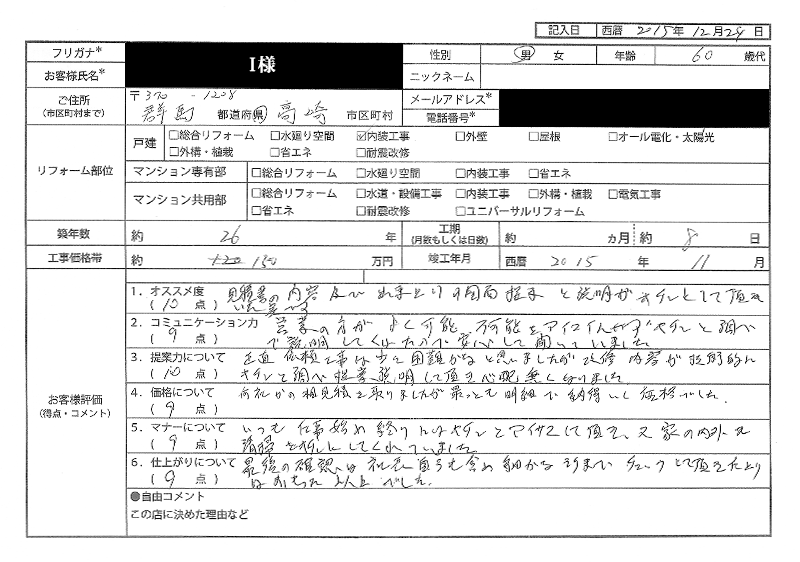 記入日 西暦 2015年 12月 29日
フリガナ*
お客様氏名*
I様
性別 男 女 年齢 60 歳代
ニックネーム
ご住所
(市区町村まで)
〒370-1208
群馬 都道府県 高崎 市区町村
メールアドレス*
電話番号*
リフォーム部位
戸建 □総合リフォーム □水廻り空間 ☑内装工事 □外壁 □屋根 □オール電化・太陽光
□外構・植栽 □省エネ □耐震改修
マンション専有部 □総合リフォーム □水廻り空間 □内装工事 □省エネ
マンション共用部 □総合リフォーム □水道・設備工事 □内装工事 □外構・植栽 □電気工事
□省エネ □耐震改修 □ユニバーサルリフォーム
築年数 約 26 年
工期
(月数もしくは日数)
約 ヵ月 約 8 日
工事価格帯 約 120 130 万円 竣工年月 西暦 2015 年 11 月
お客様評価
(得点・コメント)
1．オススメ度 見積書の内容及び 図面 提案 と説明がキチンとして頂き
( 10 点 )
2．コミュニケーション力 営業の方がよく可能、不可能を キチンと調べ
( 9 点 ) で説明してくれたので安心して聞いていました
3．提案力について 正直 依頼工事は少々困難かなと思いましたが改修内容が技術的に
( 10 点 ) キチンと調べ提案、説明して頂き心配無くなりました
4．価格について 他社からの相見積を取りましたが最っとも明細で納得いく価格でした。
( 9 点 )
5．マナーについて いつも仕事始め終りにはキチンとアイサツして頂き、又家の内外も
( 9 点 ) 清掃をキチンにしてくれていました
6．仕上がりについて 最後の確認は社長自らも含め細かな所までチェックして頂き
( 9 点 ) はおもった以上でした。
●自由コメント
この店に決めた理由など